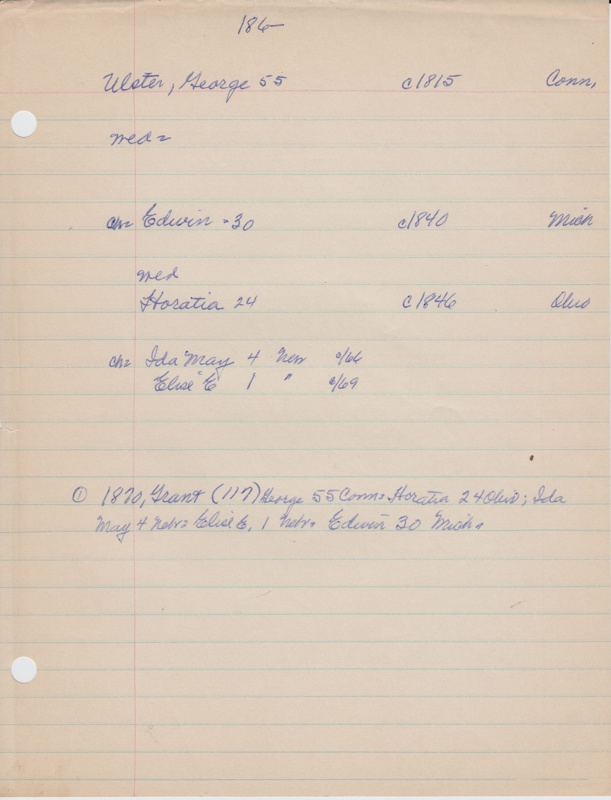 186-
Ulster, George 55 c1815 Conn.
med=
ch= Edwin - 30 c1840 Mich
med
Horatia 24 c1846 Ohio
ch= Ida May 4 Neb c/66
Elise E 1 " c/69
① 1870, Grant (117) George 55 Conn= Horatia 24 Ohio; Ida
May 4 Neb= Elise E, 1 Neb= Edwin 30 Mich=